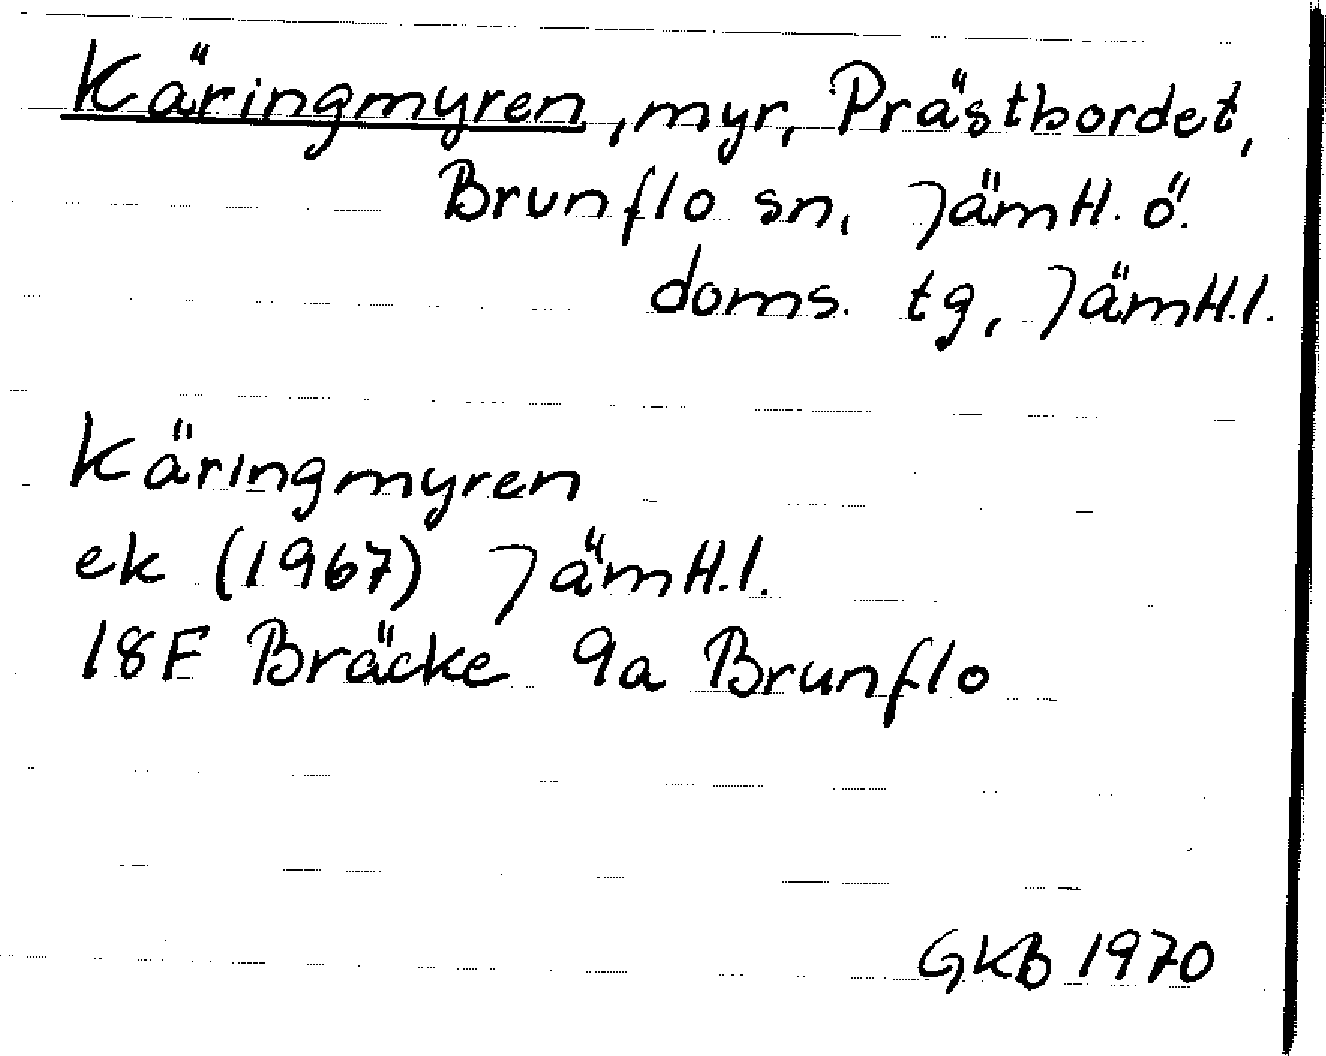 Käringmyren, myr, Prästbordet,
Brunflo sn, Jämtl. ö.
doms. tg, Jämtl. l.
Käringmyren
ek (1967) Jämtl. l.
18F Bräcke 9a Brunflo
GKB 1970